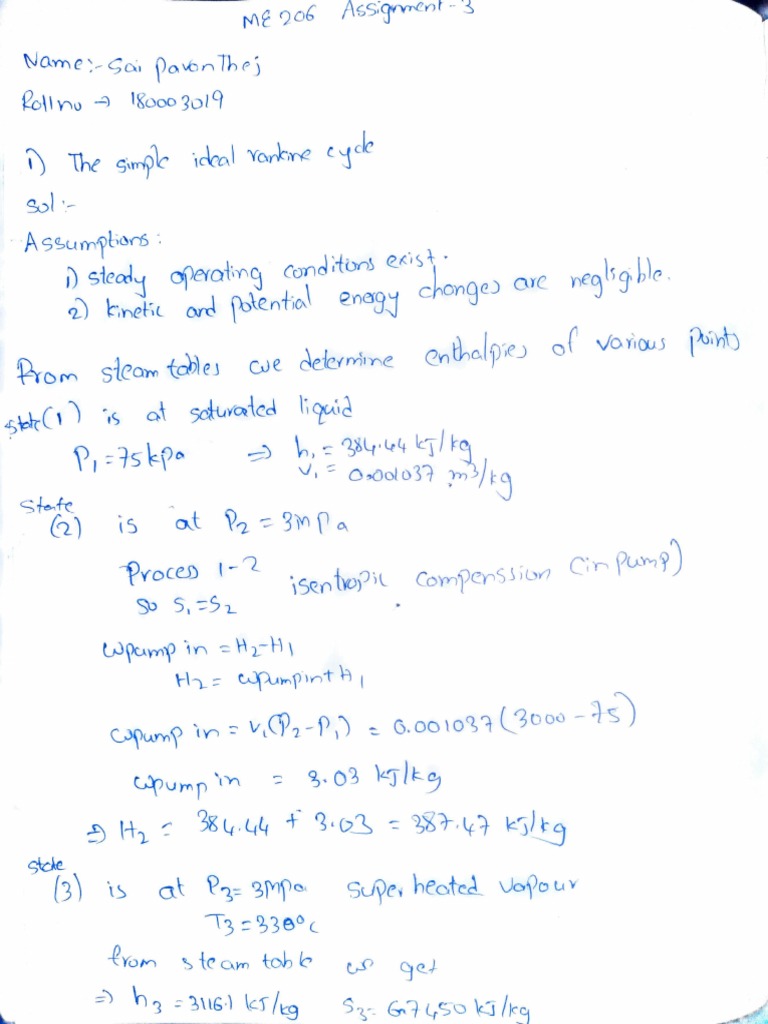 ME 206 Assignment-3
Name:- Sai Pavan Thej
Roll no → 180003019
1) The simple ideal rankine cycle
Sol:-
Assumptions:
1) steady operating conditions exist.
2) kinetic and potential energy changes are negligible.
From steam tables we determine enthalpies of various points
state(1) is at saturated liquid
P₁ = 75 kpa ⇒ h₁ = 384.44 kJ/kg
v₁ = 0.001037 m³/kg
State
(2) is at P₂ = 3mpa
Process 1-2 isentropic compenssion (in pump)
so S₁ = S₂
wpump in = H₂-H₁
H₂ = wpumpin + H₁
wpump in = v₁(P₂-P₁) = 0.001037(3000-75)
wpump in = 3.03 kJ/kg
⇒ H₂ = 384.44 + 3.03 = 387.47 kJ/kg
state
(3) is at P₃ = 3mpa superheated vapour
T₃ = 330°c
from steam table we get
⇒ h₃ = 3116.1 kJ/kg S₃ = 6.7450 kJ/kg